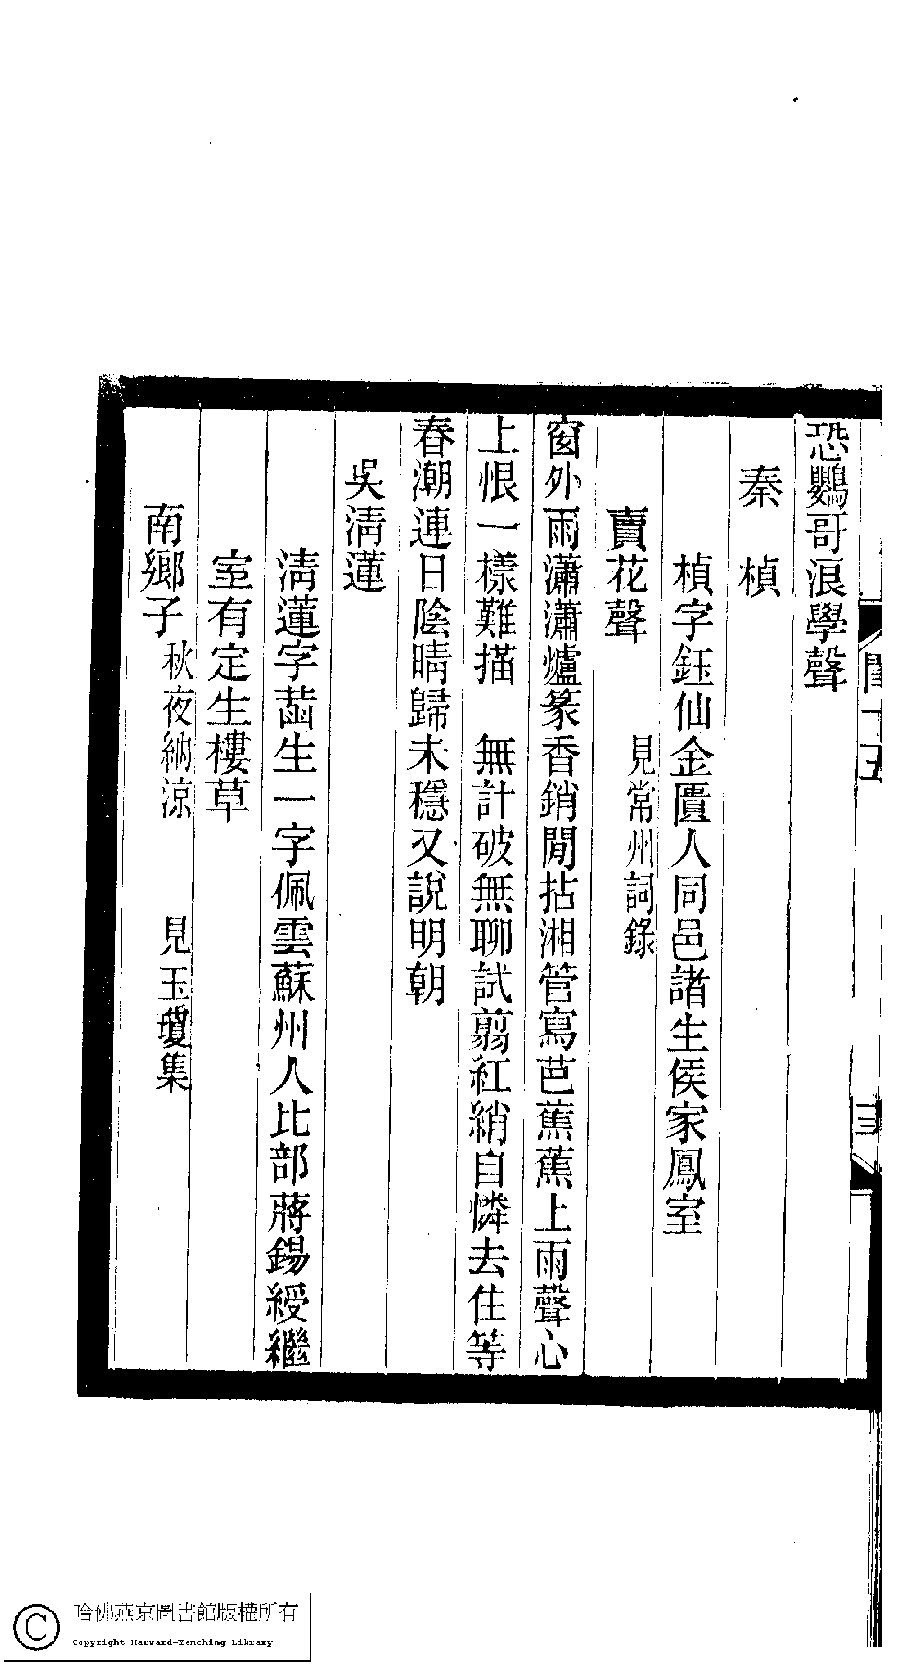 恐鸚哥浪學聲
秦　楨
楨字鈺仙金匱人同邑諸生侯家鳳室
賣花聲　見常州詞錄
窗外雨瀟瀟爐篆香銷閒拈湘管寫芭蕉蕉上雨聲心
上恨一樣難描　無計破無聊試翦紅綃自憐去住等
春潮連日陰晴歸未穩又說明朝
吳清蓮
清蓮字葘生一字佩雲蘇州人比部蔣錫綬繼
室有定生樓草
南鄉子秋夜納涼　見玉瓊集
哈佛燕京圖書館版權所有
Copyright Harvard-Yenching Library